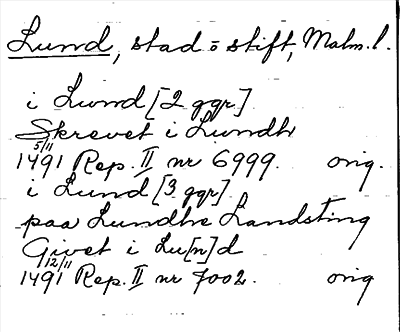 Lund, stad o stift, Malm. l.
i Lund [2 ggr]
Skrevet i Lundh
5/11
1491 Rep. II nr 6999. orig.
i Lund [3 ggr]
paa Lundhe Landsting
Givet i Lu[n]d
12/11
1491 Rep. II nr 7002. orig